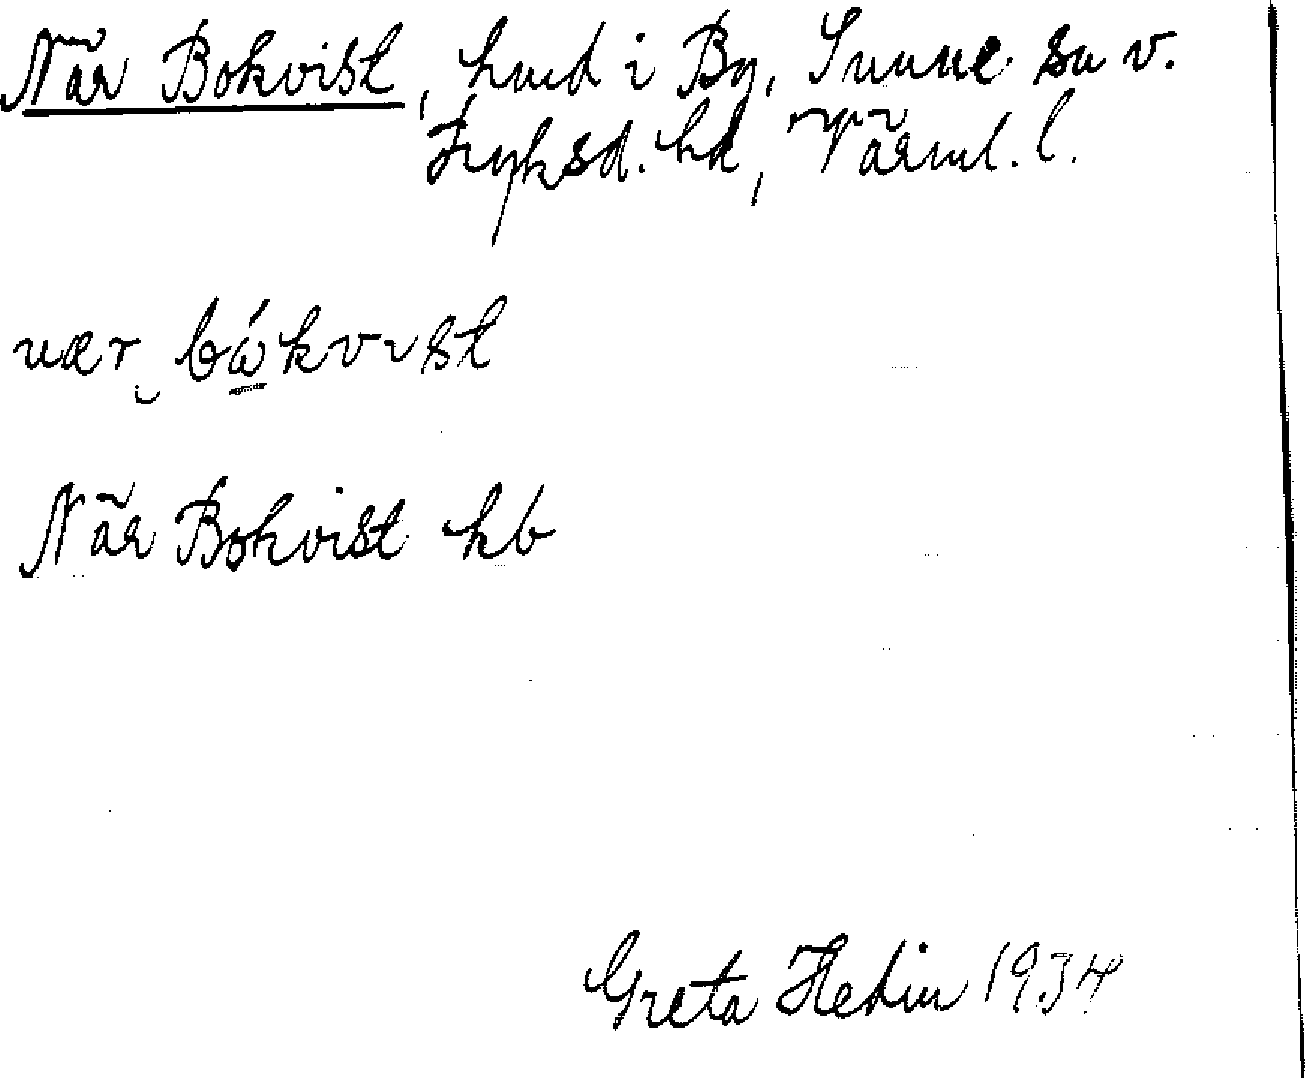 När Bokvist, hmd i By, Sunne sn v.
Fryksd. hd, Värml. l.
nær bǻkvist
När Bokvist kb
Greta Hedin 1934